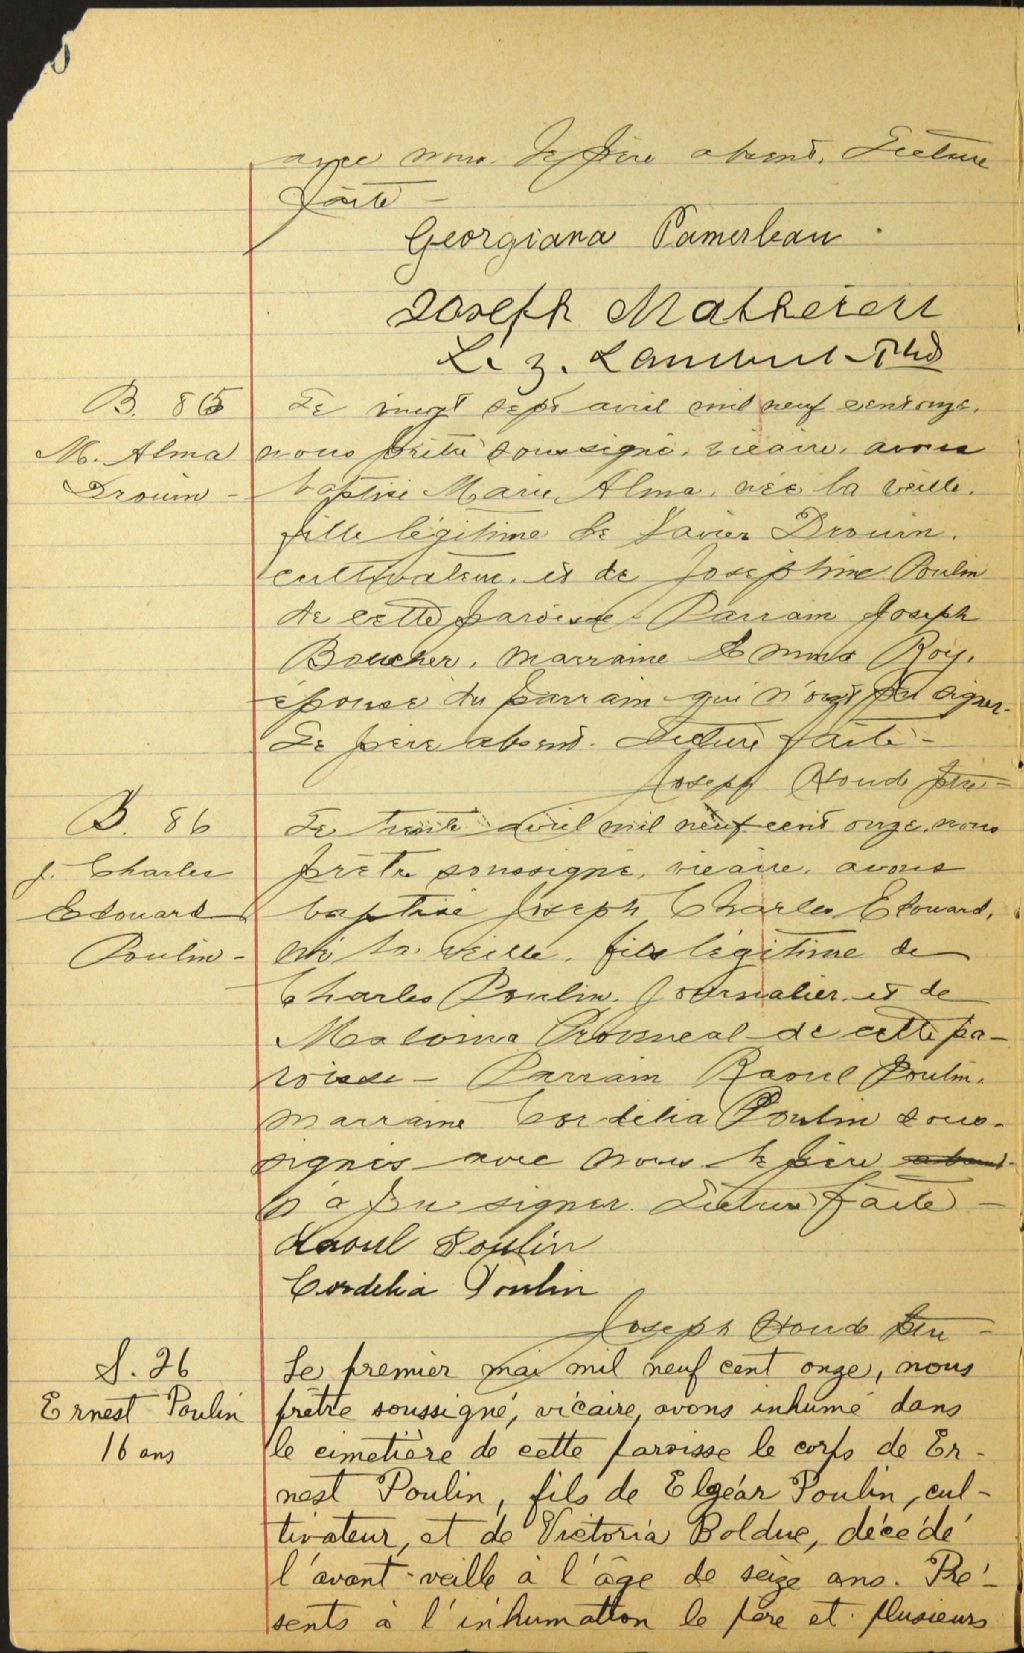 avec nous. Le père absent. Lecture
faite -
Georgiana Pamerleau
Joseph
L. Z. Lambert Ptre
B. 85
M. Alma
Drouin -
Le vingt sept avril mil neuf cent onze,
nous prêtre soussigné, vicaire, avons
baptisé Marie, Alma, née la veille,
fille légitime de Xavier Drouin,
cultivateur, et de Joséphine Poulin
de cette paroisse - Parrain Joseph
Boucher, marraine Emma Roy,
épouse du parrain qui n'ont pu signer.
Le père absent. Lecture faite -
Joseph Houde ptre -
B. 86
J. Charles
Edouard
Poulin -
Le trente avril mil neuf cent onze, nous
prêtre soussigné, vicaire, avons
baptisé Joseph, Charles, Edouard,
né la veille, fils légitime de
Charles Poulin, journalier et de
Malvina de cette pa-
roisse - Parrain Raoul Poulin,
marraine Cordélia Poulin sous-
signés avec nous. Le père absent
n'a pu signer. Lecture faite -
Raoul Poulin
Cordelia Poulin
Joseph Houde ptre -
S. 26
Ernest Poulin
16 ans
Le premier mai mil neuf cent onze, nous
prêtre soussigné, vicaire, avons inhumé dans
le cimetière de cette paroisse le corps de Er-
nest Poulin, fils de Elgéar Poulin, cul-
tivateur, et de Victoria Bolduc, décédé
l'avant-veille à l'âge de seize ans. Pré-
sents à l'inhumation le père et plusieurs